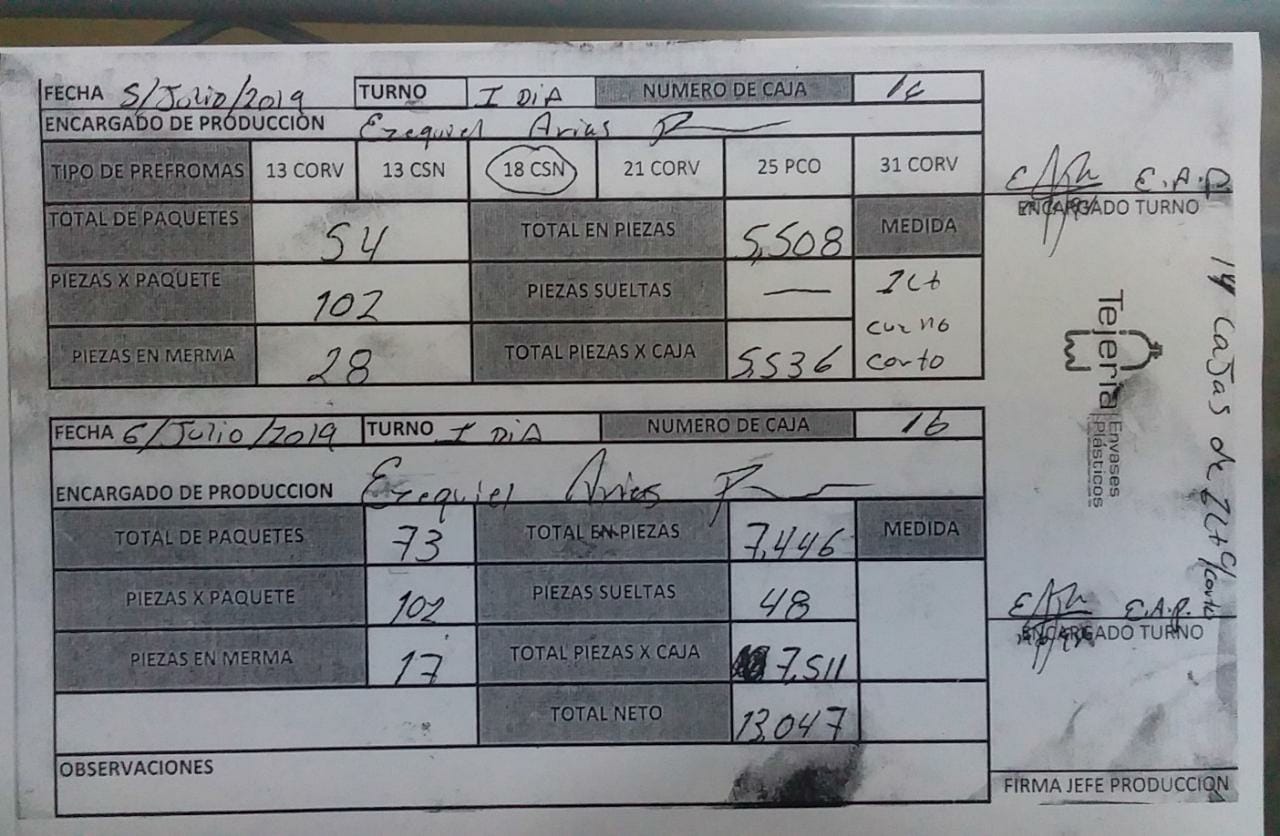 FECHA 5/Julio/2019 TURNO I DiA NUMERO DE CAJA
ENCARGADO DE PRODUCCIÓN Ezequiel Arias
TIPO DE PREFROMAS 13 CORV 13 CSN 18 CSN 21 CORV 25 PCO 31 CORV
TOTAL DE PAQUETES 54 TOTAL EN PIEZAS 5,508 MEDIDA
PIEZAS X PAQUETE 102 PIEZAS SUELTAS — 1Lt
cuello
corto
PIEZAS EN MERMA 28 TOTAL PIEZAS X CAJA 5,536
E.A.P.
ENCARGADO TURNO
FECHA 6/Julio/2019 TURNO I DiA NUMERO DE CAJA 16
ENCARGADO DE PRODUCCION Ezequiel Arias
TOTAL DE PAQUETES 73 TOTAL EN PIEZAS 7,446 MEDIDA
PIEZAS X PAQUETE 102 PIEZAS SUELTAS 48
PIEZAS EN MERMA 17 TOTAL PIEZAS X CAJA 7,511
TOTAL NETO 13,047
OBSERVACIONES
E.A.P.
ENCARGADO TURNO
FIRMA JEFE PRODUCCION
Tejeria
Envases
Plásticos
14 Cajas de 1Lt c/corto